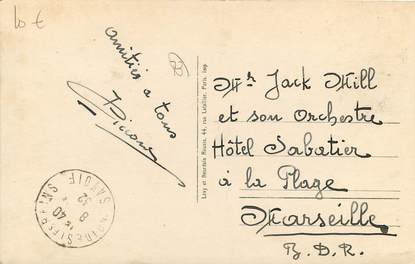 10 €
amitiés a tous
Lévy et Neurdein Réunis, 44, rue Letellier, Paris, Imp.
Mr Jack Mill
et son Orchestre
Hôtel Sabatier
à la Plage
Marseille
B. D. R.
SAVOIE
8
32
40